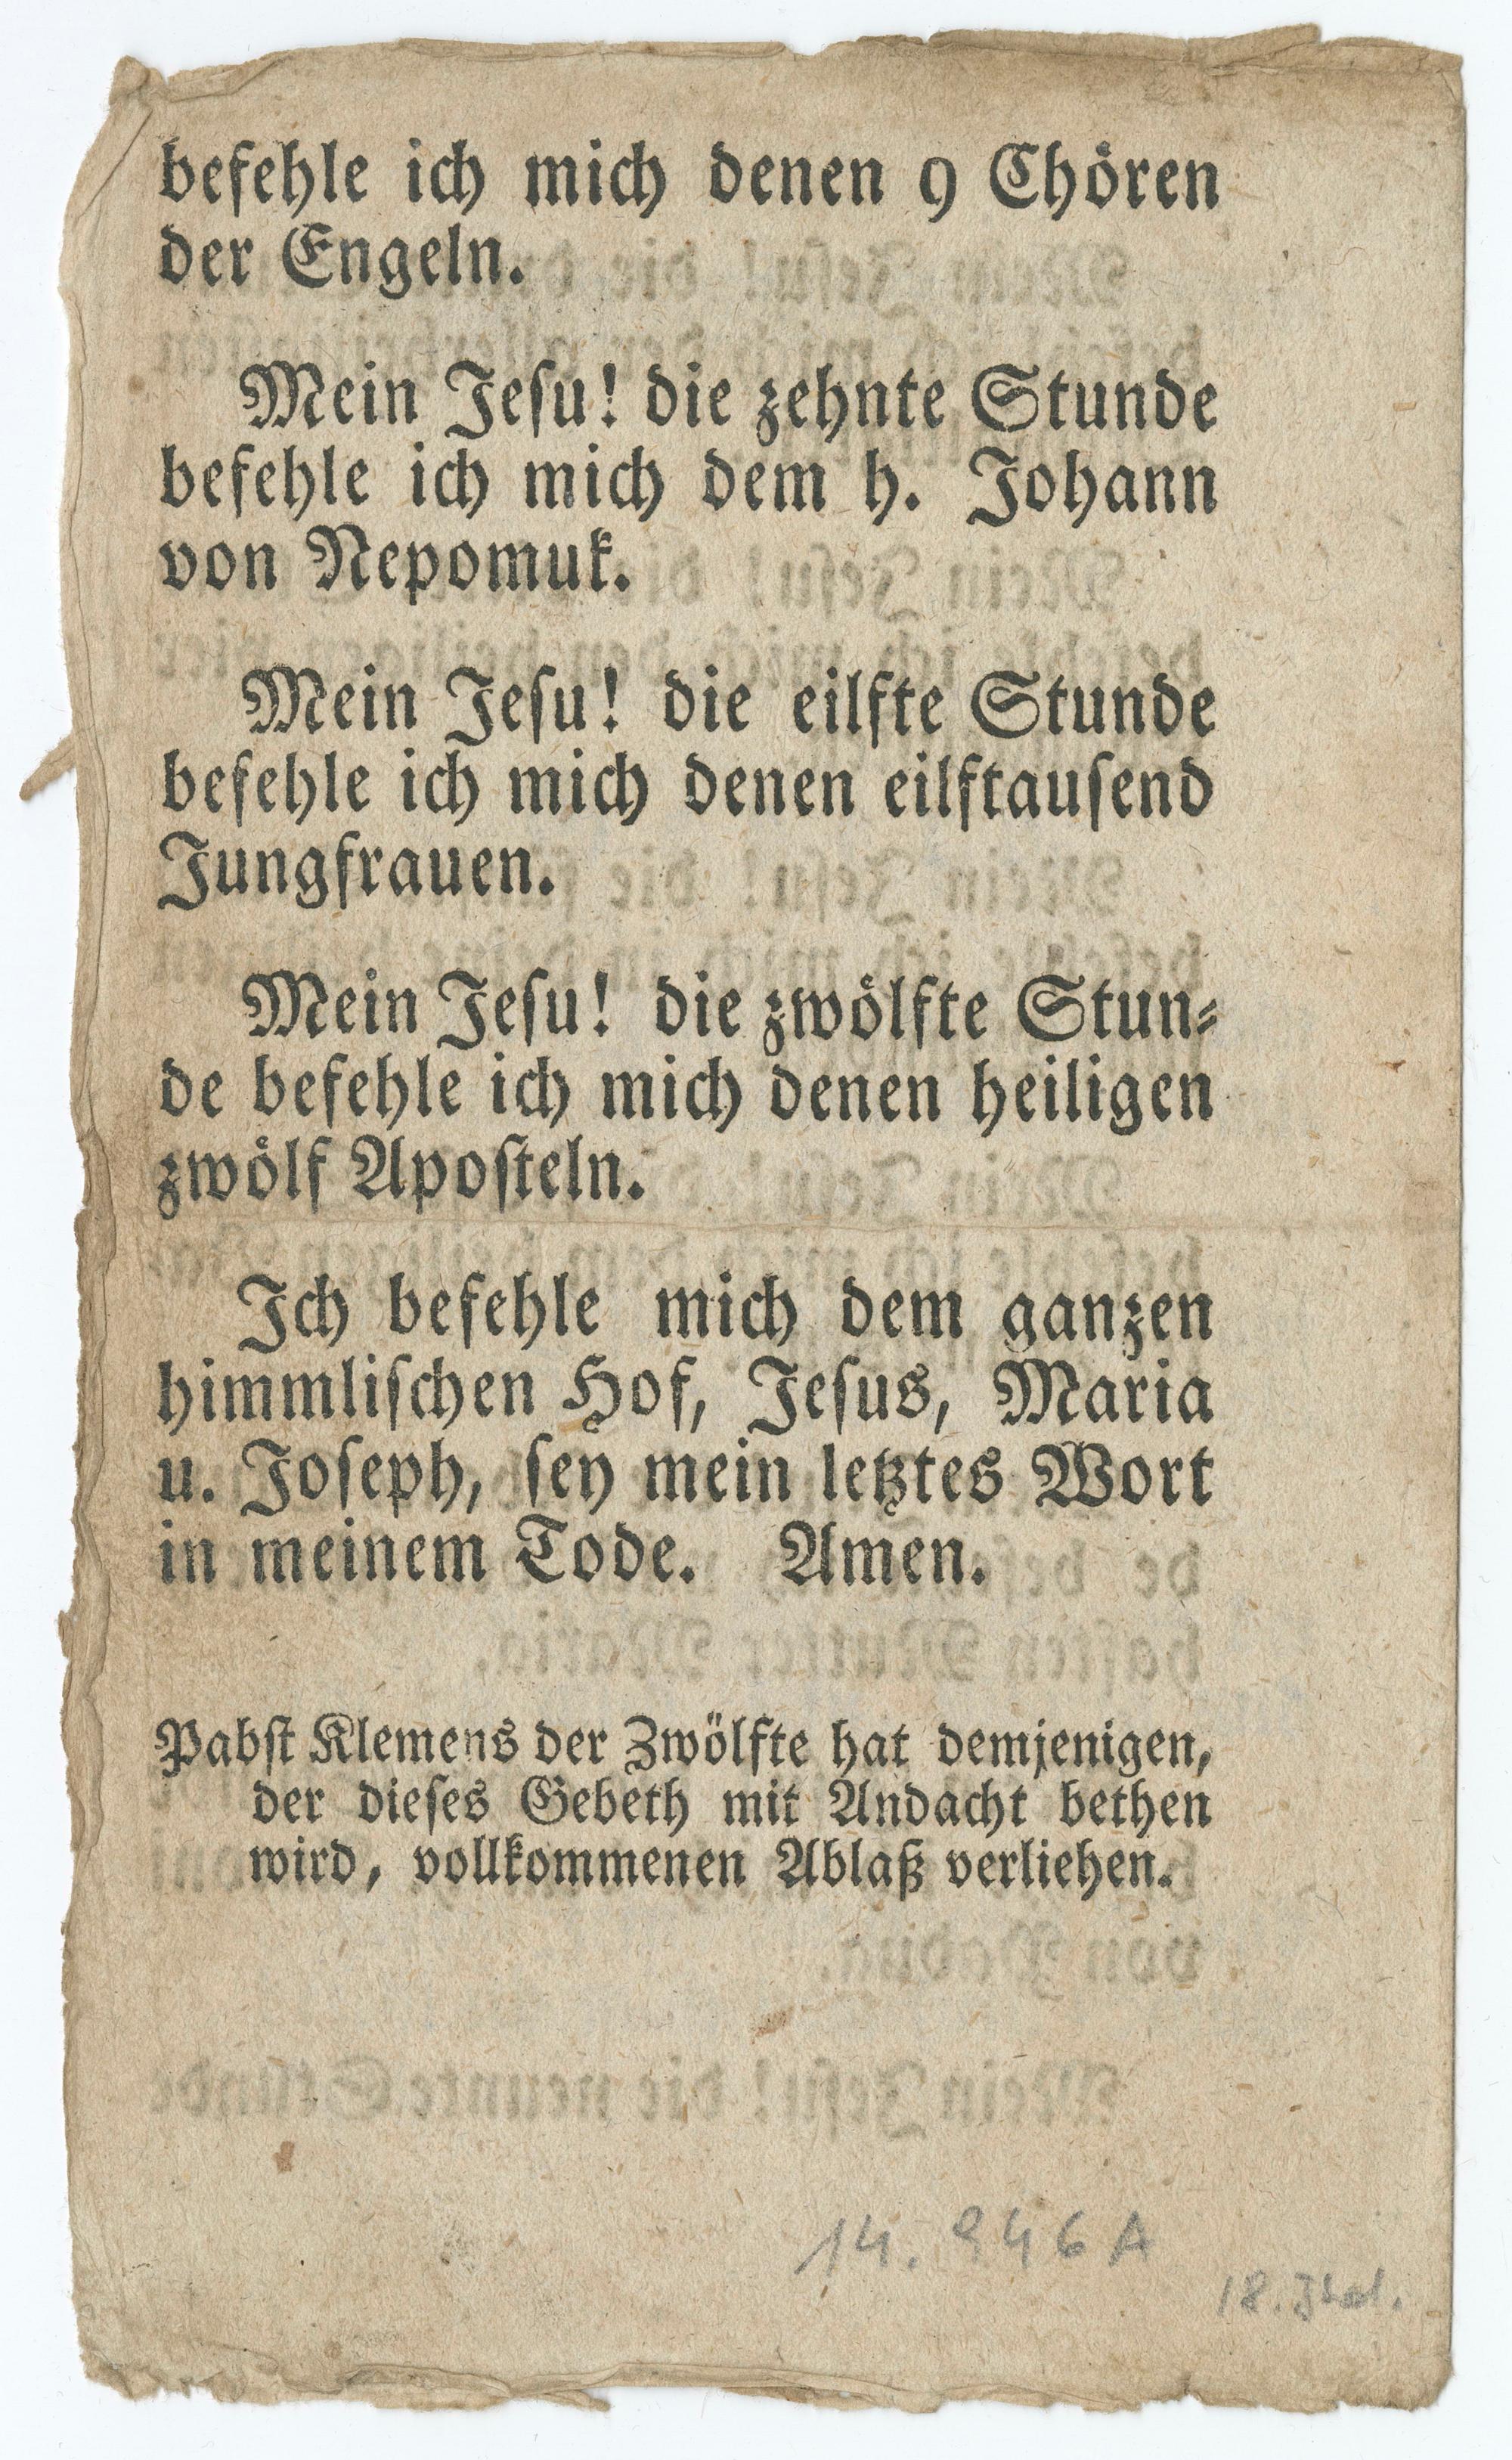 befehle ich mich denen 9 Chören
der Engeln.
Mein Jeſu! die zehnte Stunde
befehle ich mich dem h. Johann
von Nepomuk.
Mein Jeſu! die eilfte Stunde
befehle ich mich denen eilftauſend
Jungfrauen.
Mein Jeſu! die zwölfte Stun⸗
de befehle ich mich denen heiligen
zwölf Apoſteln.
Ich befehle mich dem ganzen
himmliſchen Hof, Jeſus, Maria
u. Joſeph, ſey mein letztes Wort
in meinem Tode. Amen.
Pabſt Klemens der Zwölfte hat demjenigen,
der dieſes Gebeth mit Andacht bethen
wird, vollkommenen Ablaß verliehen.
14. 946 A
18. Jhd.